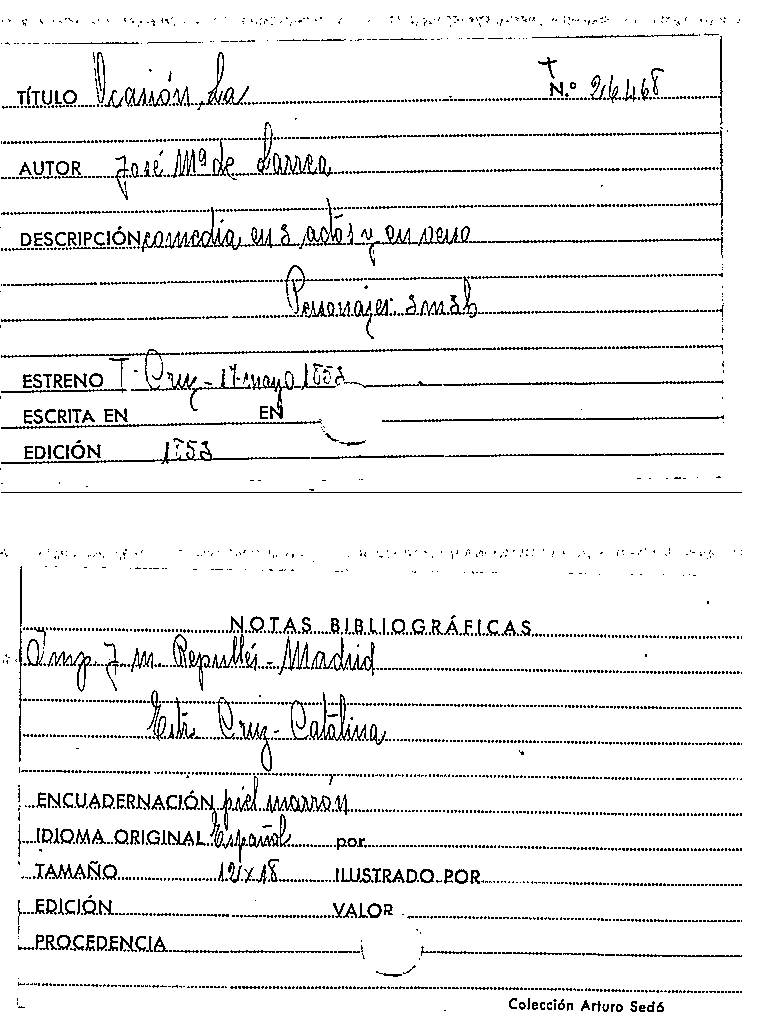 TÍTULO Ocasión, La N.º 26468
AUTOR José Mª de Larrea
DESCRIPCIÓN comedia en 3 actos y en verso
Personajes 3m3h
ESTRENO T. Cruz - 17 mayo 1853
ESCRITA EN EN
EDICIÓN 1853
NOTAS BIBLIOGRÁFICAS
Imp. J. M. Repullés - Madrid
Estr. Cruz - Catalina
ENCUADERNACIÓN piel marrón
IDIOMA ORIGINAL Español por
TAMAÑO 12 x 18 ILUSTRADO POR
EDICIÓN VALOR
PROCEDENCIA
Colección Arturo Sedó